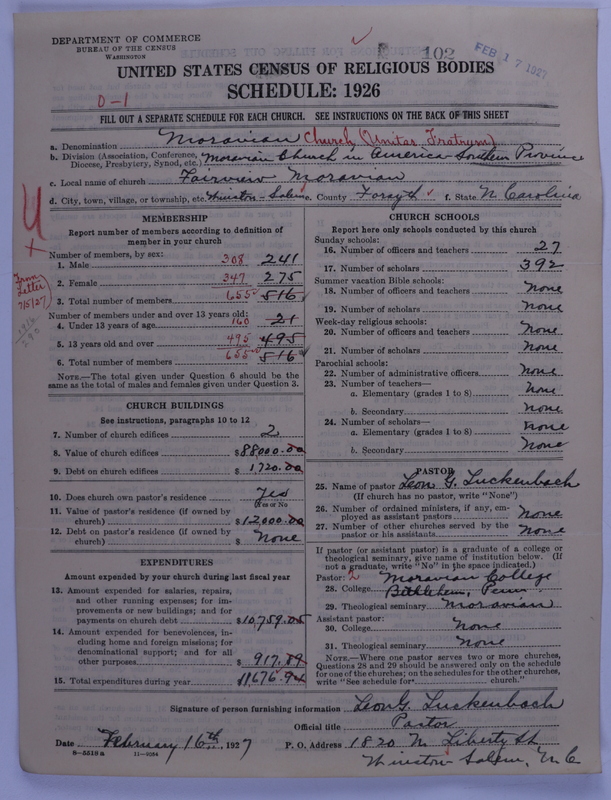 DEPARTMENT OF COMMERCE
BUREAU OF THE CENSUS
WASHINGTON
102
FEB 17 1927
UNITED STATES CENSUS OF RELIGIOUS BODIES
SCHEDULE: 1926
0-1
FILL OUT A SEPARATE SCHEDULE FOR EACH CHURCH. SEE INSTRUCTIONS ON THE BACK OF THIS SHEET
a. Denomination Moravian Church (Unitas Fratrum)
b. Division (Association, Conference, Diocese, Presbytery, Synod, etc.) Moravian Church in America Southern Province
c. Local name of church Fairview Moravian
d. City, town, village, or township, etc. Winston-Salem e. County Forsyth f. State N Carolina
From Letter 7/5/27
MEMBERSHIP
Report number of members according to definition of
member in your church
Number of members, by sex:
1. Male 308 241
2. Female 347 275
3. Total number of members 655 516
Number of members under and over 13 years old:
4. Under 13 years of age 160 21
5. 13 years old and over 495 495
6. Total number of members 655 516
NOTE.—The total given under Question 6 should be the
same as the total of males and females given under Question 3.
CHURCH BUILDINGS
See instructions, paragraphs 10 to 12
7. Number of church edifices 2
8. Value of church edifices $88000.00
9. Debt on church edifices $1,720.00
10. Does church own pastor's residence Yes
(Yes or No)
11. Value of pastor's residence (if owned by
church) $12,000.00
12. Debt on pastor's residence (if owned by
church) $ None
EXPENDITURES
Amount expended by your church during last fiscal year
13. Amount expended for salaries, repairs,
and other running expenses; for im-
provements or new buildings; and for
payments on church debt $10,759.05
14. Amount expended for benevolences, in-
cluding home and foreign missions; for
denominational support; and for all
other purposes $ 917.89
15. Total expenditures during year $11676.94
CHURCH SCHOOLS
Report here only schools conducted by this church
Sunday schools:
16. Number of officers and teachers 27
17. Number of scholars 392
Summer vacation Bible schools:
18. Number of officers and teachers None
19. Number of scholars None
Week-day religious schools:
20. Number of officers and teachers None
21. Number of scholars None
Parochial schools:
22. Number of administrative officers None
23. Number of teachers—
a. Elementary (grades 1 to 8) None
b. Secondary None
24. Number of scholars—
a. Elementary (grades 1 to 8) None
b. Secondary None
PASTOR
25. Name of pastor Leon G. Luckenbach
(If church has no pastor, write "None")
26. Number of ordained ministers, if any, em-
ployed as assistant pastors None
27. Number of other churches served by the
pastor or his assistants None
If pastor (or assistant pastor) is a graduate of a college or
theological seminary, give name of institution below. (If
not a graduate, write "No" in the space indicated.)
Pastor: 2 Moravian College
28. College Bethlehem, Penn.
29. Theological seminary Moravian
Assistant pastor:
30. College None
31. Theological seminary None
NOTE.—Where one pastor serves two or more churches,
Questions 28 and 29 should be answered only on the schedule
for one of the churches; on the schedules for the other churches,
write "See schedule for church."
Signature of person furnishing information Leon G. Luckenbach
Official title Pastor
Date February 16th, 1927 P. O. Address 1820 N. Liberty St
Winston Salem, N.C
8—5518a 11—9084